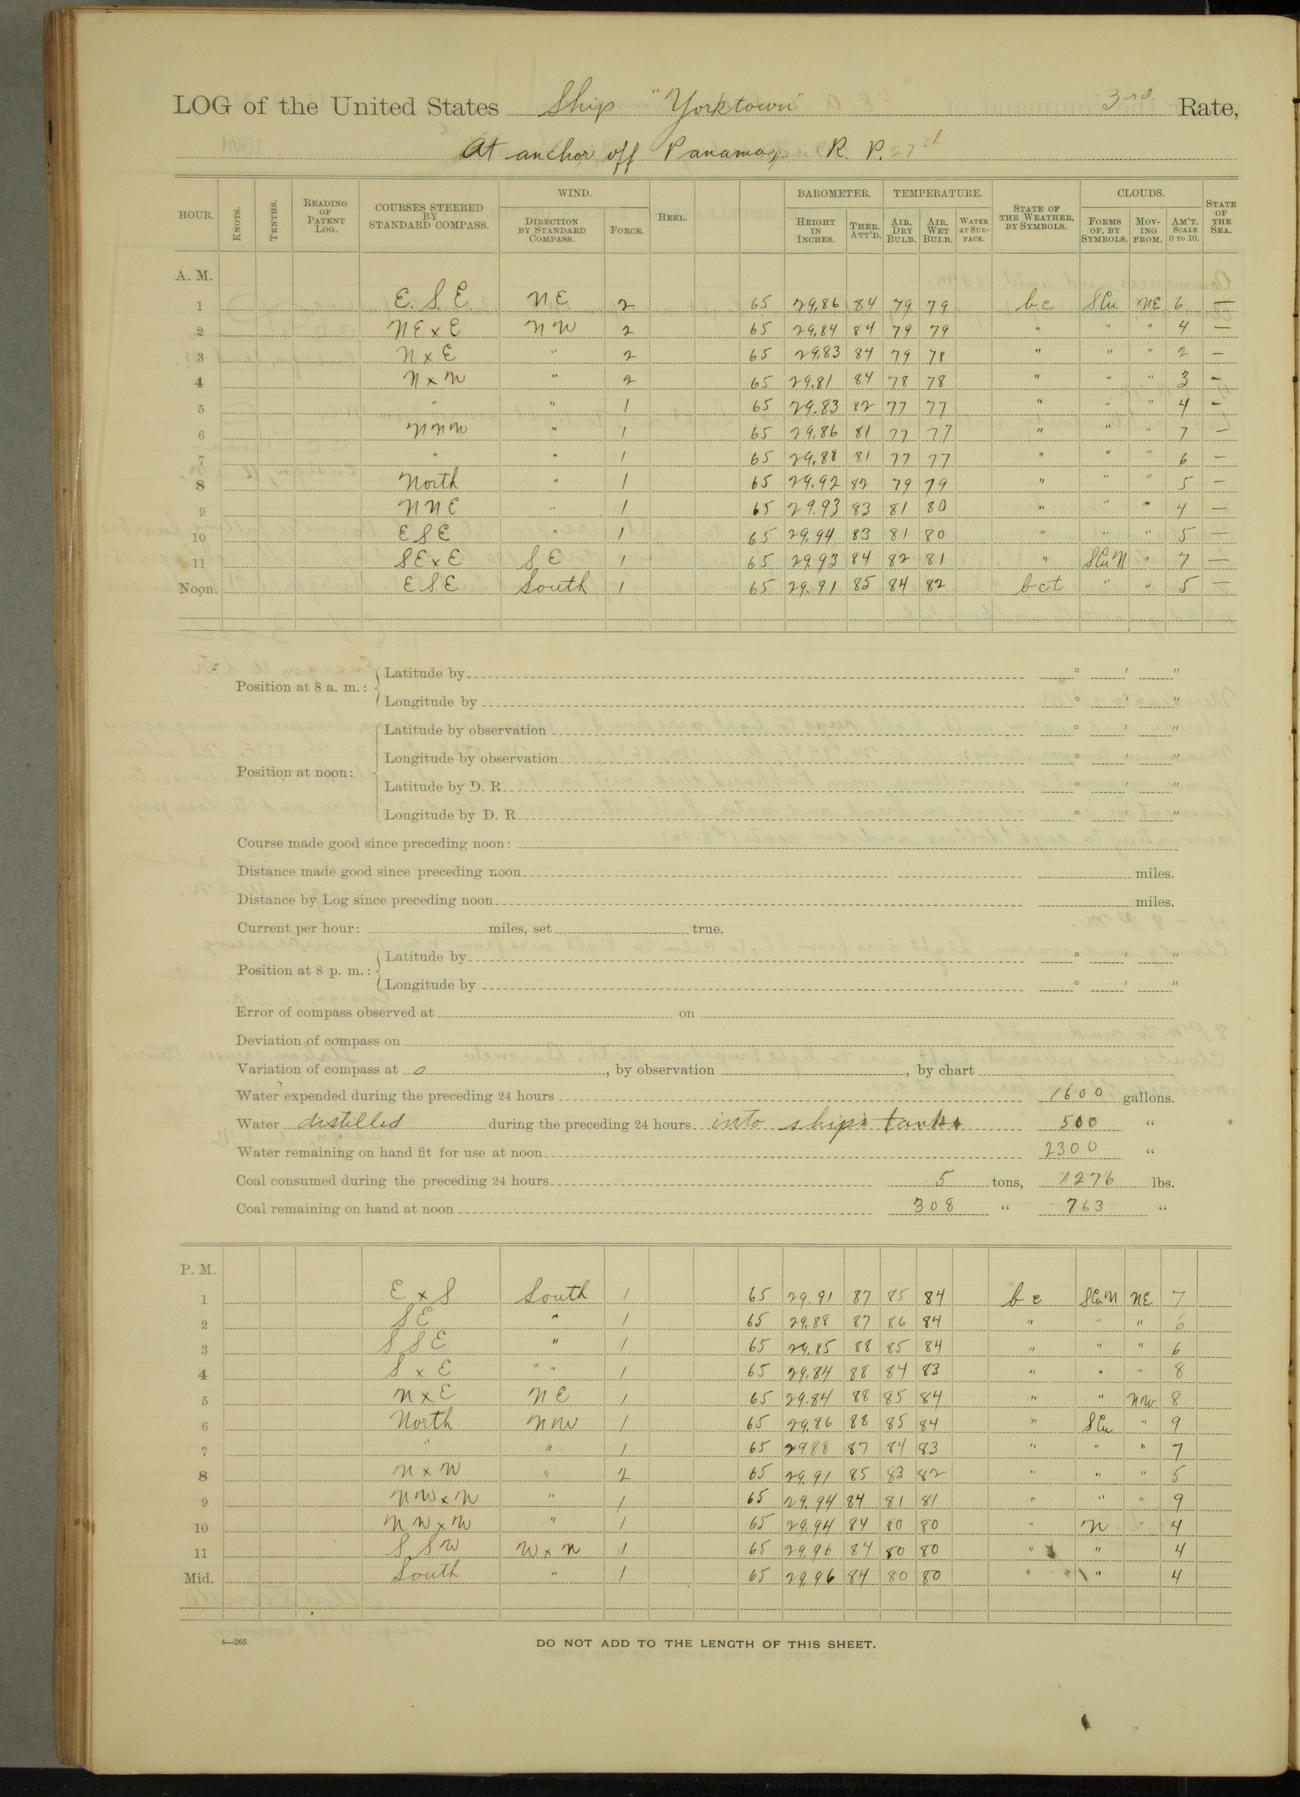 LOG of the United States Ship "Yorktown" 3rd Rate,
At anchor off Panama, R. P.
HOUR. KNOTS. TENTHS. READING OF PATENT LOG. COURSES STEERED BY STANDARD COMPASS. WIND. DIRECTION BY STANDARD COMPASS. FORCE. HEEL. BAROMETER. HEIGHT IN INCHES. THER. ATT'D. TEMPERATURE. AIR, DRY BULB. AIR, WET BULB. WATER AT SURFACE. STATE OF THE WEATHER, BY SYMBOLS. CLOUDS. FORMS OF, BY SYMBOLS. MOVING FROM. AM'T. SCALE 0 TO 10. STATE OF THE SEA.
A. M.
1 E. S. E NE 2 65 29.86 84 79 79 bc SCu NE 6 —
2 NE x E NW 2 65 29.84 84 79 79 " " " 4 —
3 N x E " 2 65 29.83 84 79 78 " " " 2 —
4 N x W " 2 65 29.81 84 78 78 " " " 3 —
5 " " 1 65 29.83 82 77 77 " " " 4 —
6 NNW " 1 65 29.86 81 77 77 " " " 7 —
7 " " 1 65 29.88 81 77 77 " " " 6 —
8 North " 1 65 29.92 82 79 79 " " " 5 —
9 NNE " 1 65 29.93 83 81 80 " " " 4 —
10 ESE " 1 65 29.94 83 81 80 " " " 5 —
11 SE x E SE 1 65 29.93 84 82 81 " SCuN " 7 —
Noon. ESE South 1 65 29.91 85 84 82 bct " " 5 —
Position at 8 a. m.: Latitude by ° ' "
Longitude by ° ' "
Position at noon: Latitude by observation ° ' "
Longitude by observation ° ' "
Latitude by D. R. ° ' "
Longitude by D. R. ° ' "
Course made good since preceding noon:
Distance made good since preceding noon miles.
Distance by Log since preceding noon miles.
Current per hour: miles, set true.
Position at 8 p. m.: Latitude by ° ' "
Longitude by ° ' "
Error of compass observed at on
Deviation of compass on
Variation of compass at o, by observation , by chart
Water expended during the preceding 24 hours 1600 gallons.
Water distilled during the preceding 24 hours into ships tanks 500 "
Water remaining on hand fit for use at noon 2300 "
Coal consumed during the preceding 24 hours 5 tons, 1276 lbs.
Coal remaining on hand at noon 308 " 763 "
P. M.
1 E x S South 1 65 29.91 87 85 84 bc SCuN NE 7
2 SE " 1 65 29.88 87 86 84 " " " 6
3 SSE " 1 65 29.85 88 85 84 " " " 6
4 S x E " " 1 65 29.84 88 84 83 " " " 8
5 N x E NE 1 65 29.84 88 85 84 " " NW 8
6 North NW 1 65 29.86 88 85 84 " SCu " 9
7 " " 1 65 29.88 87 84 83 " " " 7
8 N x W " 2 65 29.91 85 83 82 " " " 5
9 NW x N " 1 65 29.94 84 81 81 " " " 9
10 NW x W " 1 65 29.94 84 80 80 " N " 4
11 SSW W x N 1 65 29.96 84 80 80 " " 4
Mid. South " 1 65 29.96 84 80 80 " " 4
4—265 DO NOT ADD TO THE LENGTH OF THIS SHEET.